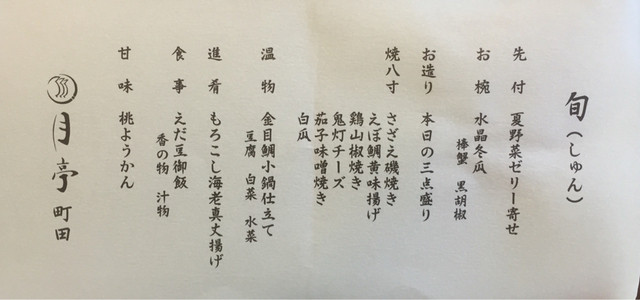 旬（しゅん）
先付 夏野菜ゼリー寄せ
お椀 水晶冬瓜
棒蟹 黒胡椒
お造り 本日の三点盛り
焼八寸 さざえ磯焼き
えぼ鯛黄味揚げ
鶏山椒焼き
鬼灯チーズ
茄子味噌焼き
白瓜
温物 金目鯛小鍋仕立て
豆腐 白菜 水菜
進肴 もろこし海老真丈揚げ
食事 えだ豆御飯
香の物 汁物
甘味 桃ようかん
月亭 町田